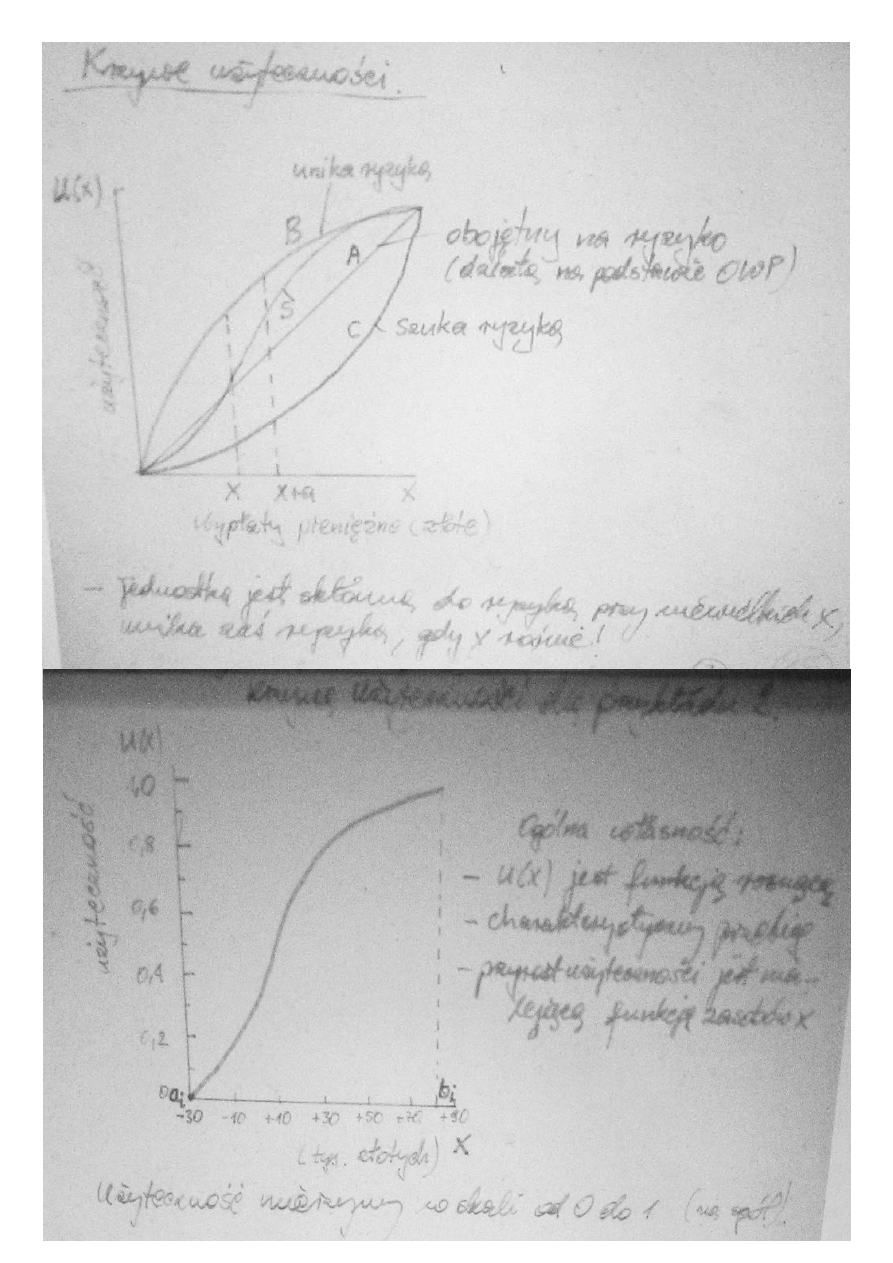 Krzywe użyteczności.
unika ryzyka
U(x)
B
A
obojętny na ryzyko
(działa na podstawie OWP)
S
C
szuka ryzyka
użyteczność
x
x+a
X
Wypłaty pieniężne (złote)
- Jednostka jest skłonna do ryzyka przy niewielkich x,
unika zaś ryzyka, gdy x rośnie!
Krzywa użyteczności dla przykładu 2.
U(x)
1,0
0,8
0,6
0,4
0,2
0
użyteczność
Ogólna własność:
- U(x) jest funkcją rosnącą
- charakterystyczny przebieg
- przyrost użyteczności jest ma-
lejącą funkcją zasobów x
ai
bi
-30 -10 +10 +30 +50 +70 +90
(tys. złotych) X
Użyteczność mierzymy w skali od 0 do 1 (na ogół)!